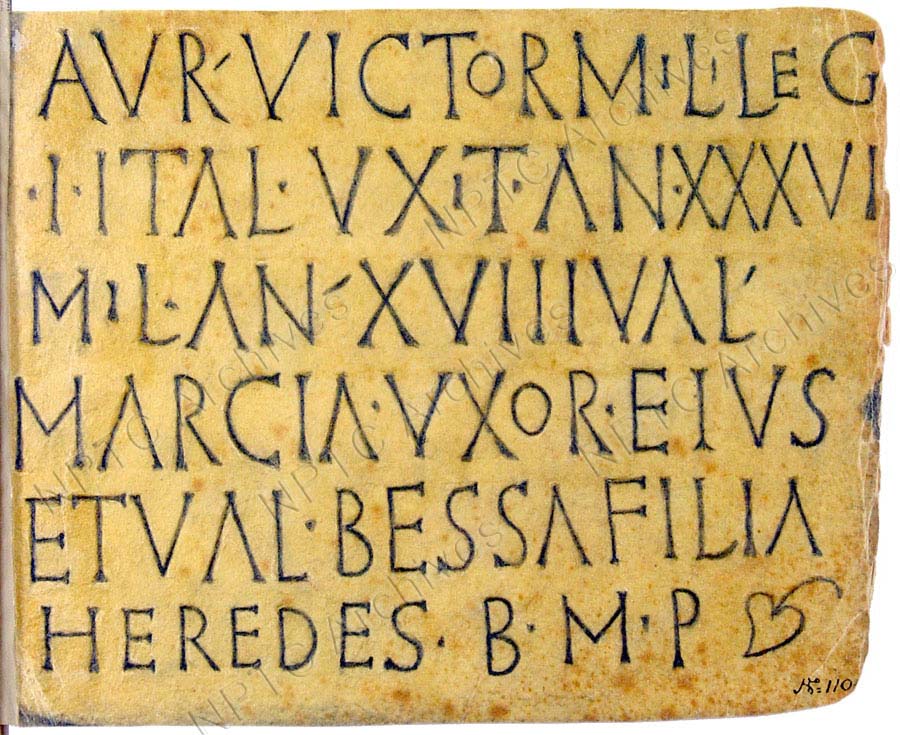 AVR´VICTORMI·L·LEG
·I·ITAL·VXIT·AN·XXXVI
MIL·AN´XVIIIIVAL´
MARCIA·VXOR·EIVS
ETVAL·BESSAFILIA
HEREDES·B·M·P
No=110
NPTC Archives